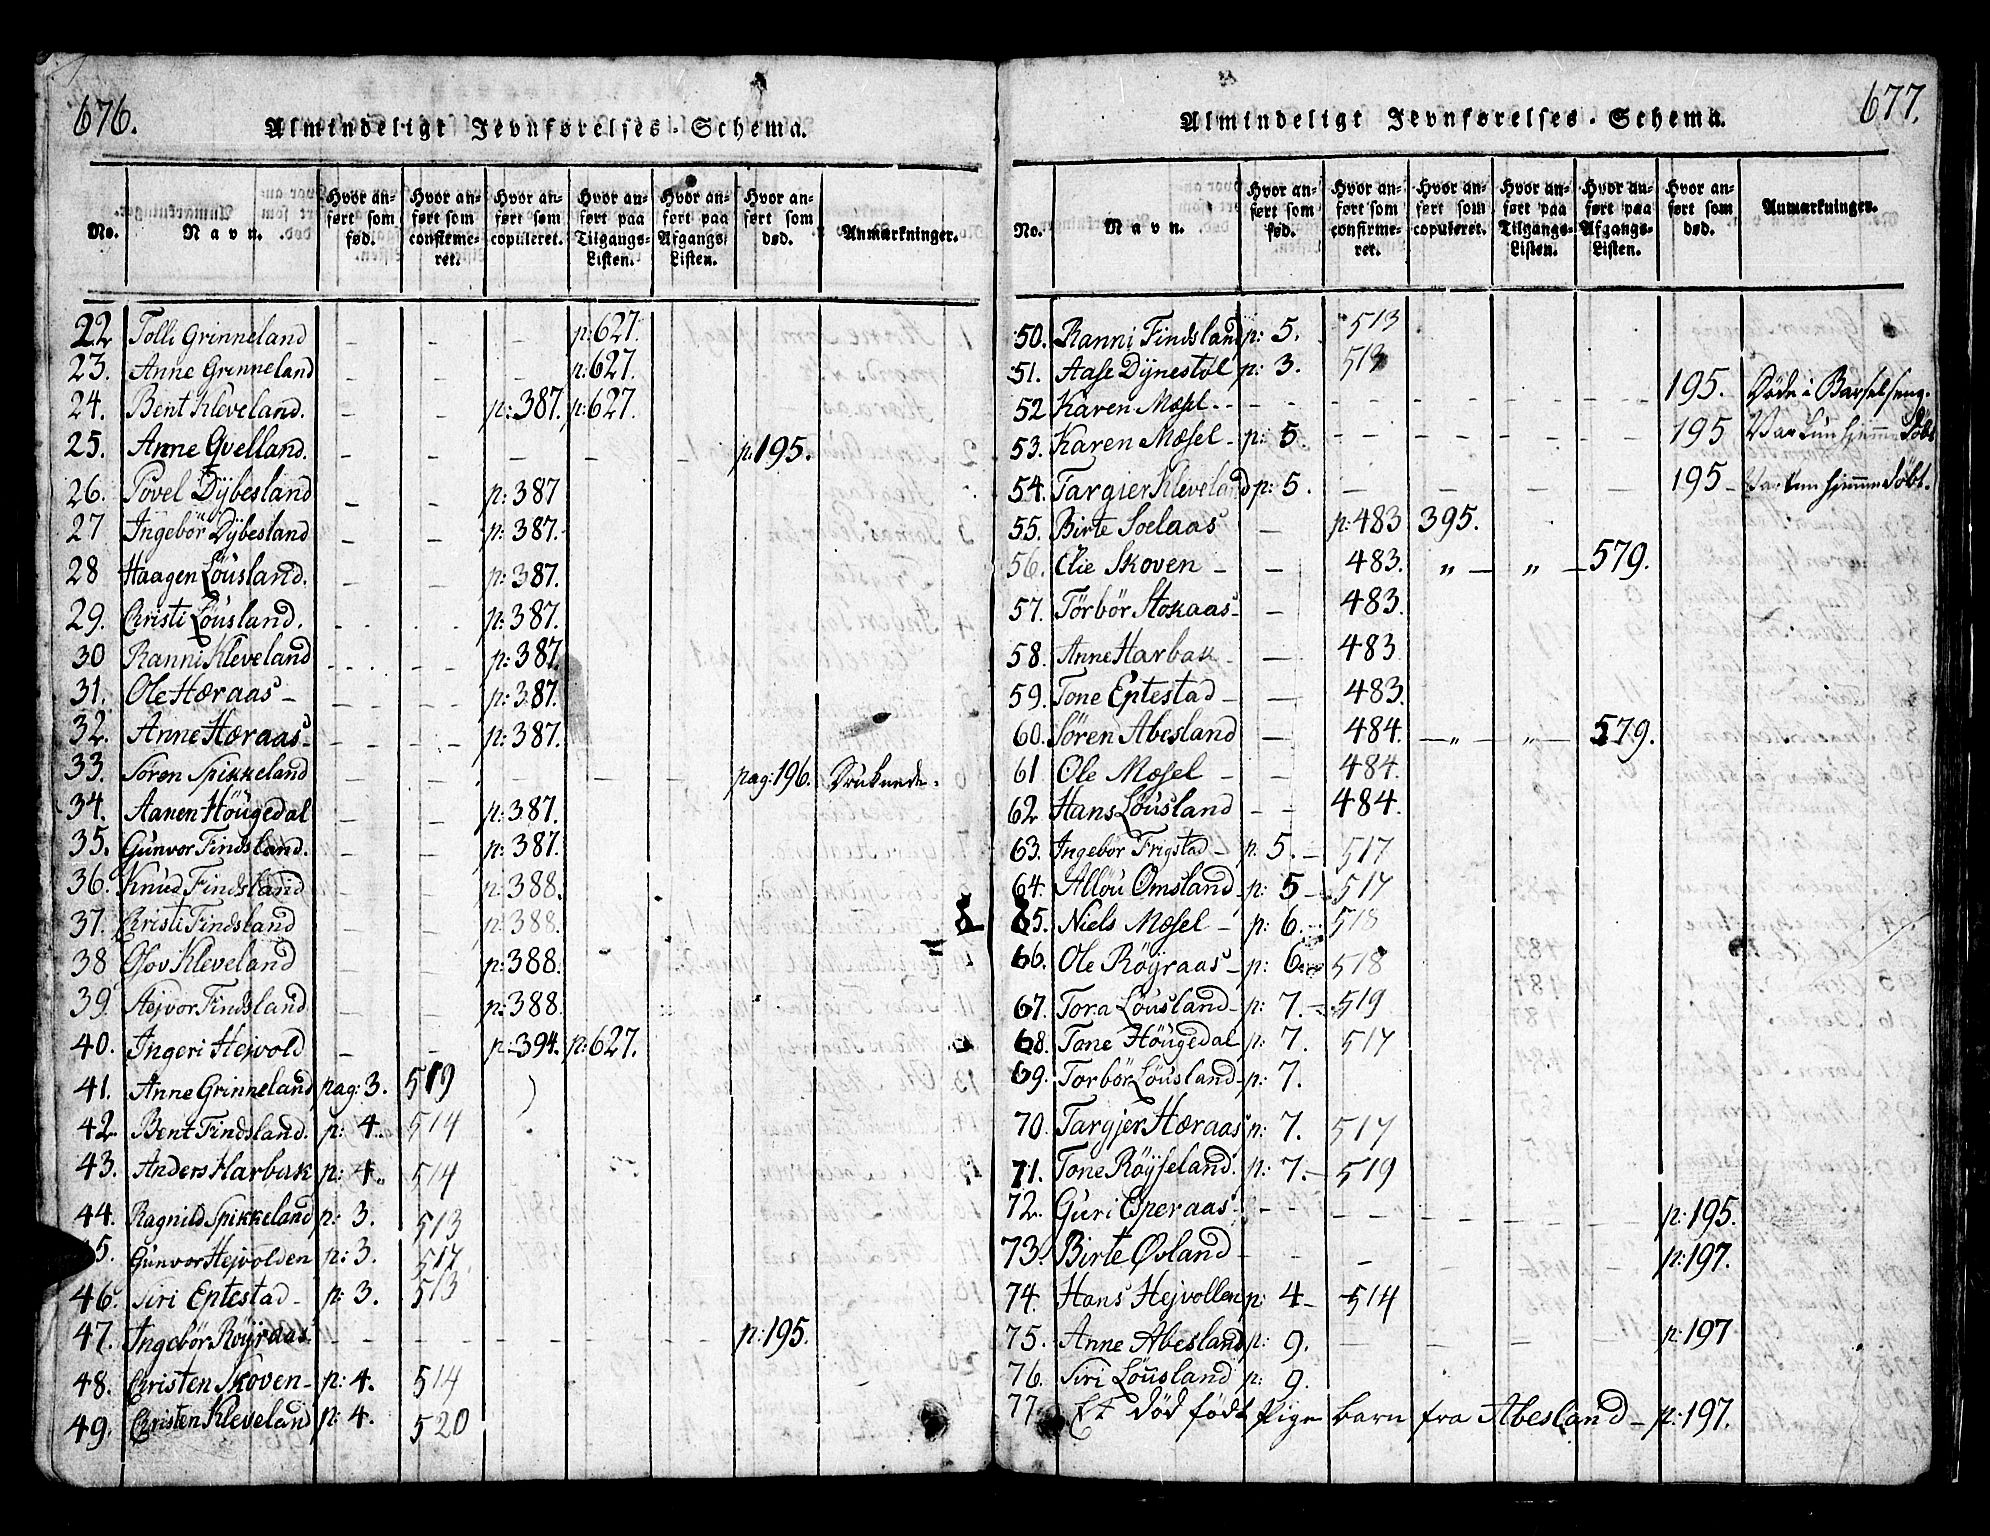 676.
Almindeligt Jevnførelses-Schema.
No.
Navn.
Hvor anført som fød.
Hvor anført som confirmeret.
Hvor anført som copuleret.
Hvor anført paa Tilgangs-Listen.
Hvor anført paa Afgangs-Listen.
Hvor anført som død.
Anmærkninger.
22 Tolli Grinneland - - - p:627.
23. Anne Grinneland - - - p:627.
24. Bent Kleveland. - - p:387. p:627.
25. Anne Qvelland. - - - - - p:195.
26. Povel Dÿbesland - - p:387
27 Ingebör Dÿbesland - - p:387.
28 Haagen Löusland. - - p:387.
29. Christi Löusland. - - p:387.
30 Ranni Kleveland - - p:387.
31. Ole Hæraas - - - p:387.
32. Anne Hæraas - - - p:387.
33. Sören Spikkeland - - - - - pag:196. Druknede.
34. Aanen Höugedal - - p:387.
35. Gunvor Findsland. - - p:387.
36. Knud Findsland - - p:388.
37. Christi Findsland - - p:388.
38 Osov Kleveland - - p:388.
39. Aejvor Findsland - - p:388.
40. Ingeri Hejvold - - p:394. p:627.
41. Anne Grinneland pag:3. 519
42. Bent Findsland. p: 4. 514
43. Anders Harbak p: 4. 514
44. Ragnild Spikkeland p: 3. 513
45. Gunvor Hejvolden p: 3. 517
46. Siri Eptestad - p: 3. 513
47. Ingebör Röÿraas - - - - - p:195.
48. Christen Skoven - p: 4. 514
49. Christen Kleveland p: 4. 520
677.
Almindeligt Jevnførelses-Schema.
No.
Navn.
Hvor anført som fød.
Hvor anført som confirmeret.
Hvor anført som copuleret.
Hvor anført paa Tilgangs-Listen.
Hvor anført paa Afgangs-Listen.
Hvor anført som død.
Anmærkninger.
50. Ranni Findsland p: 5. 513
51. Aase Dÿnestöl p: 3. 513
52 Karen Mæsel - - - - - - 195. Döde i Barselseng.
53. Karen Mæsel - p: 5 - - - - 195 Var kun hjemme Döbt
54. Targjer Kleveland p: 5. - - - - 195 - Var kun hjemme Döbt.
55. Birte Soelaas - p:483 395.
56. Elie Skoven - - 483. „ - „ - 579.
57. Törbör Stokaas - - 483.
58. Anne Harbak - - 483
59. Tone Eptestad - - 483.
60. Sören Abesland - 484. - „ - „ - 579.
61 Ole Mæsel - - 484.
62 Hans Löusland - - 484.
63. Ingebör Frigstad - p: 5. - 517
64. Allöu Omsland - p: 5 - 517
65. Niels Mæsel - p: 6. - 518
66. Ole Röÿraas - p: 6 518
67. Tora Löusland - p: 7. - 519
68. Tone Höugedal p: 7. 517
69. Torbör Löusland - p: 7.
70. Targjer Hæraas p: 7. 517
71. Tone Röÿseland. p: 7. - 519
72. Guri Eperaas - - - - - - p:195.
73. Birte Øvland - - - - - - p:197.
74. Hans Hejvollen p: 4 - 514
75. Anne Abesland p: 9. - - - - p:197
76. Siri Löusland p: 9.
77. Et död födt Pige barn fra Abesland - p:197.